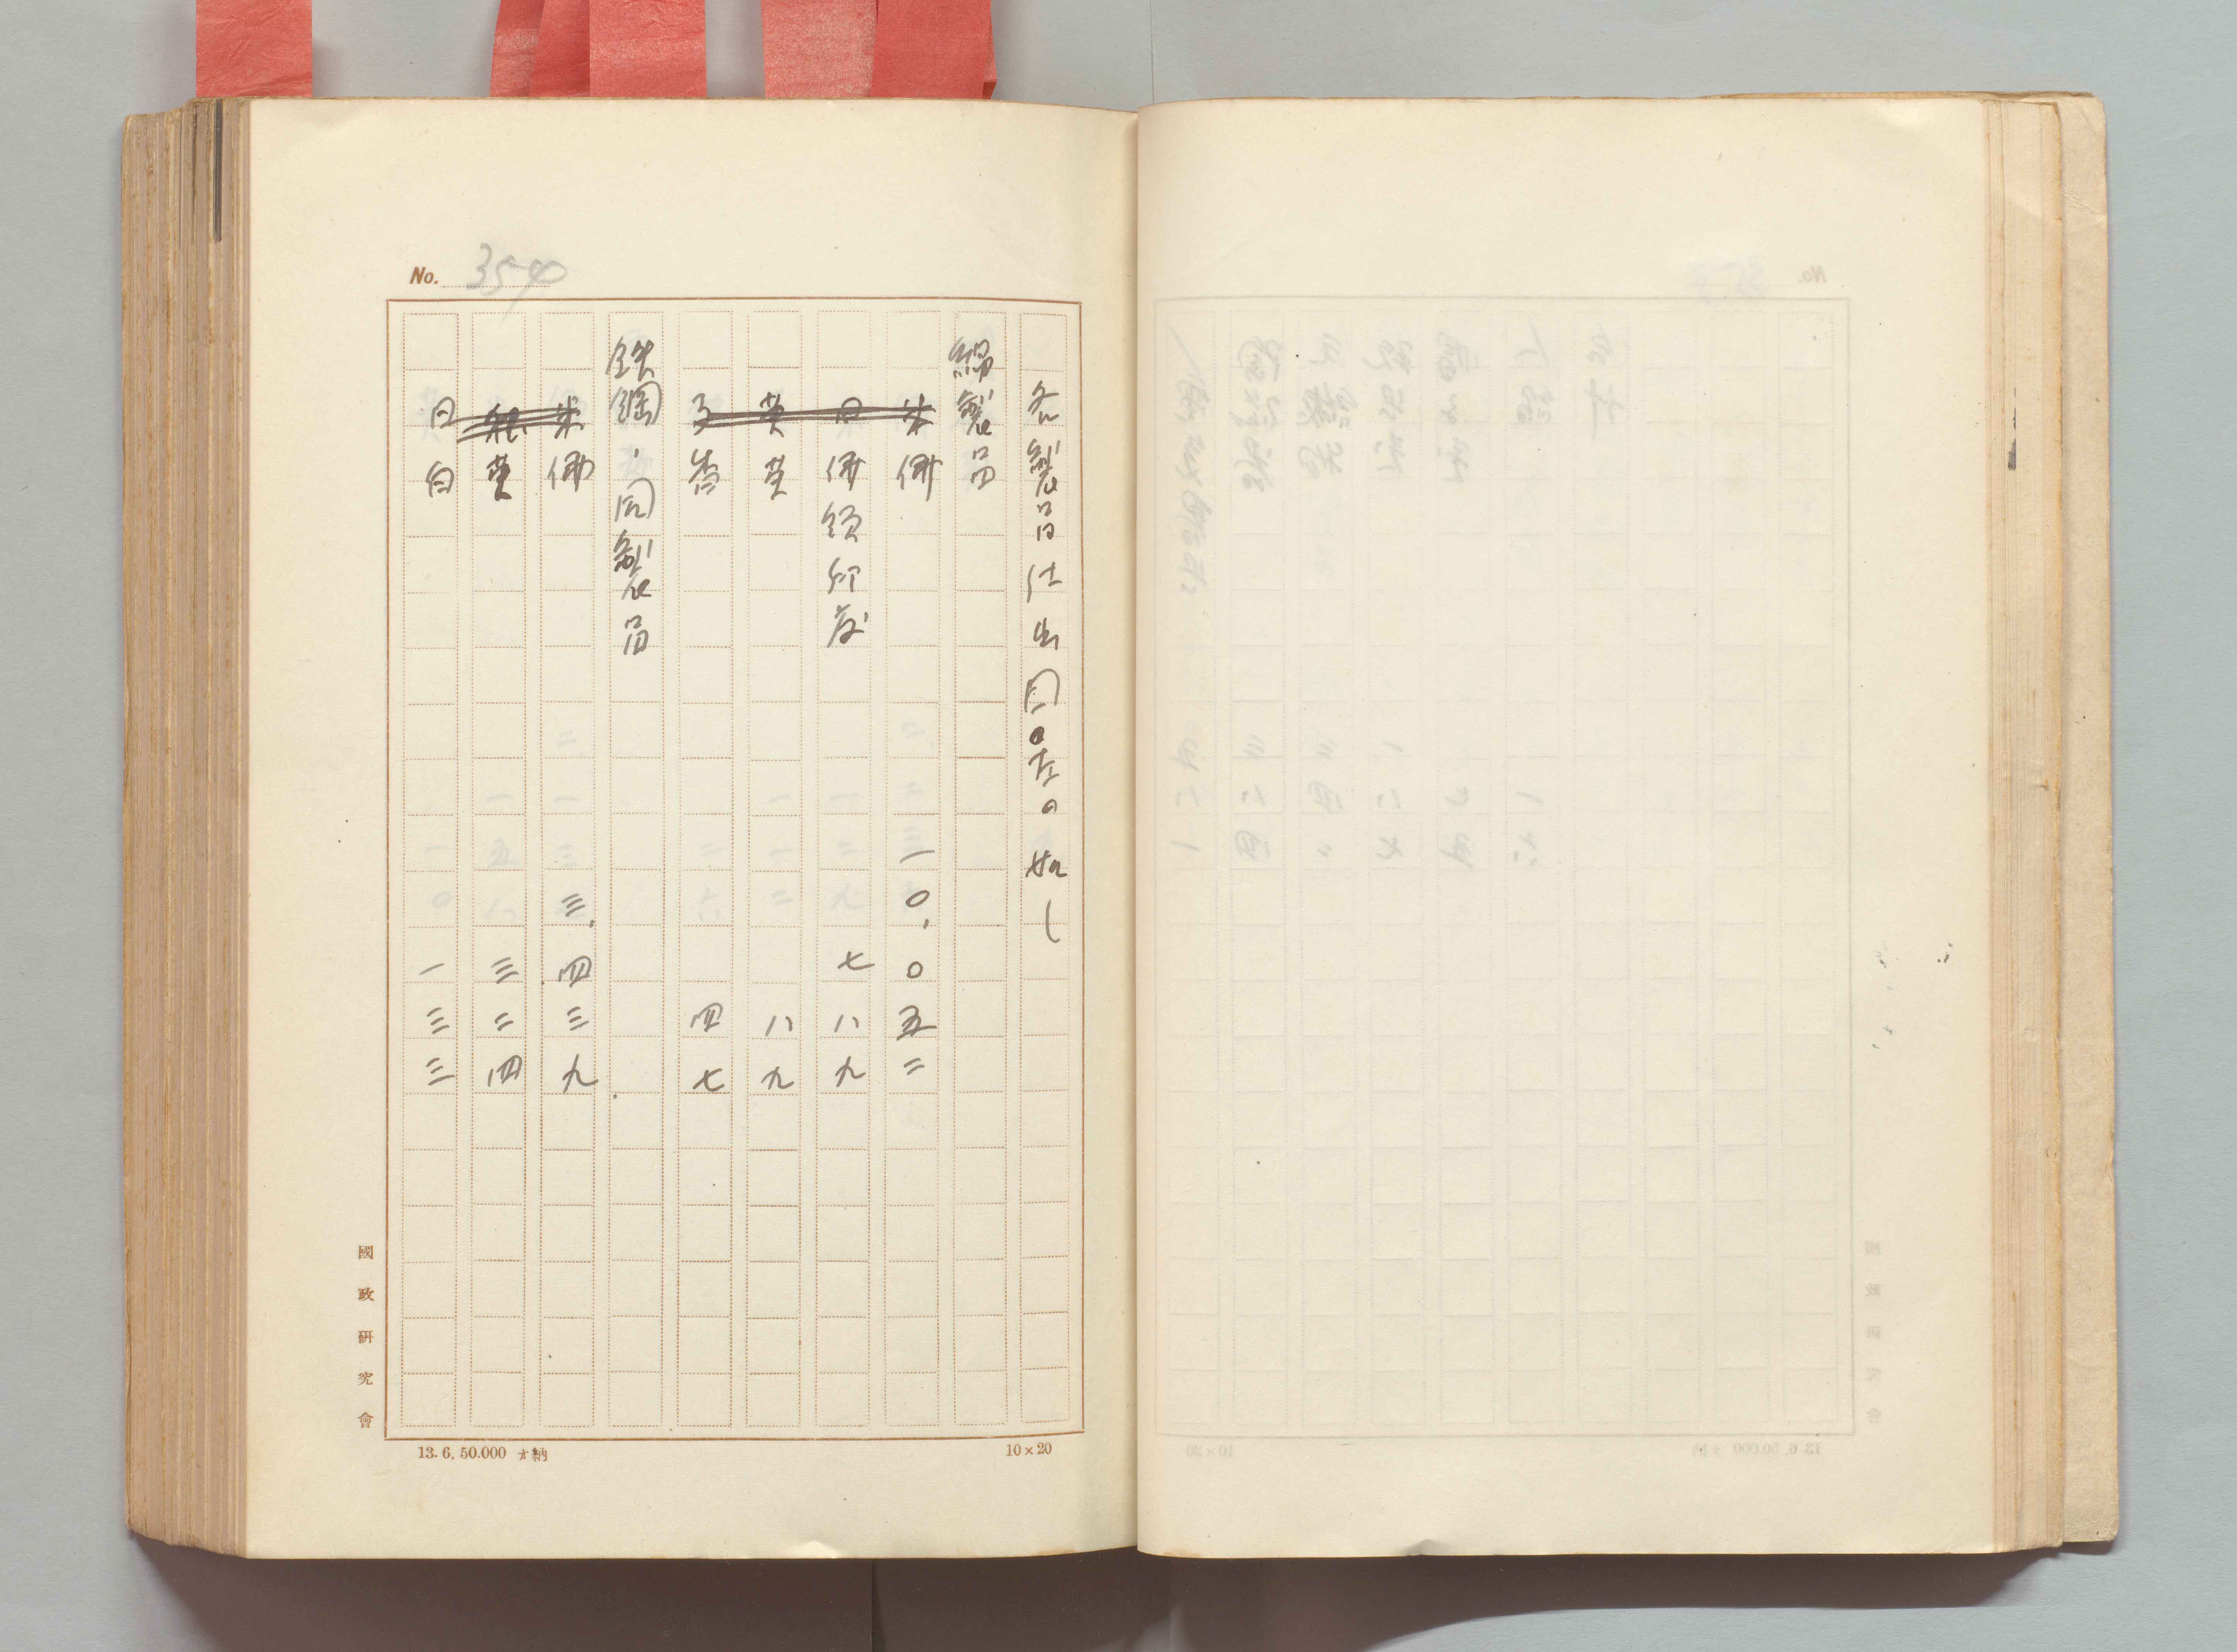 No. 354
各製品仕出国左の如し
綿製品
佛 一〇、〇五二
佛領印度 七八九
英 八九
香 四七
鉄鋼・同製品
佛 三、四三九
英 三二四
日白 一三三
國政研究會
13. 6. 50.000 納
10×20